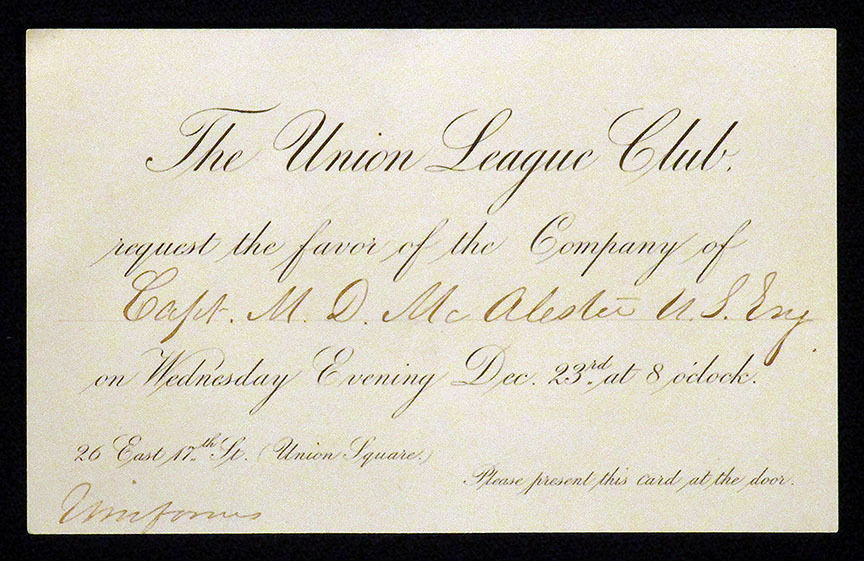 The Union League Club.
request the favor of the Company of
Capt. M. D. Mc Alester U.S. Eng.
on Wednesday Evening Dec. 23rd. at 8 o'clock.
26 East 17th. St. (Union Square.)
Please present this card at the door.
Uniforms